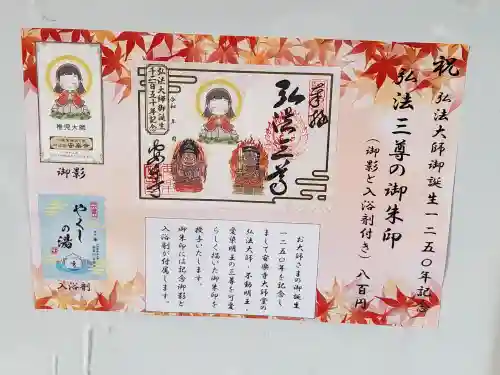 祝 弘法大師御誕生一二五〇年記念
弘法三尊の御朱印
(御影と入浴剤付き) 八百円
奉拝
弘法三尊
安楽寺
令和 年 月 日
弘法大師御誕生
千二百五十年記念
稚児大師
安楽寺
御影
やくしの湯
入浴剤
お大師さまの御誕生
一二五〇年を記念し
まして安楽寺大師堂の
弘法大師・不動明王・
愛染明王の三尊を可愛
らしく描いた御朱印を
授与いたします。
御朱印には記念御影と
入浴剤が付属します。